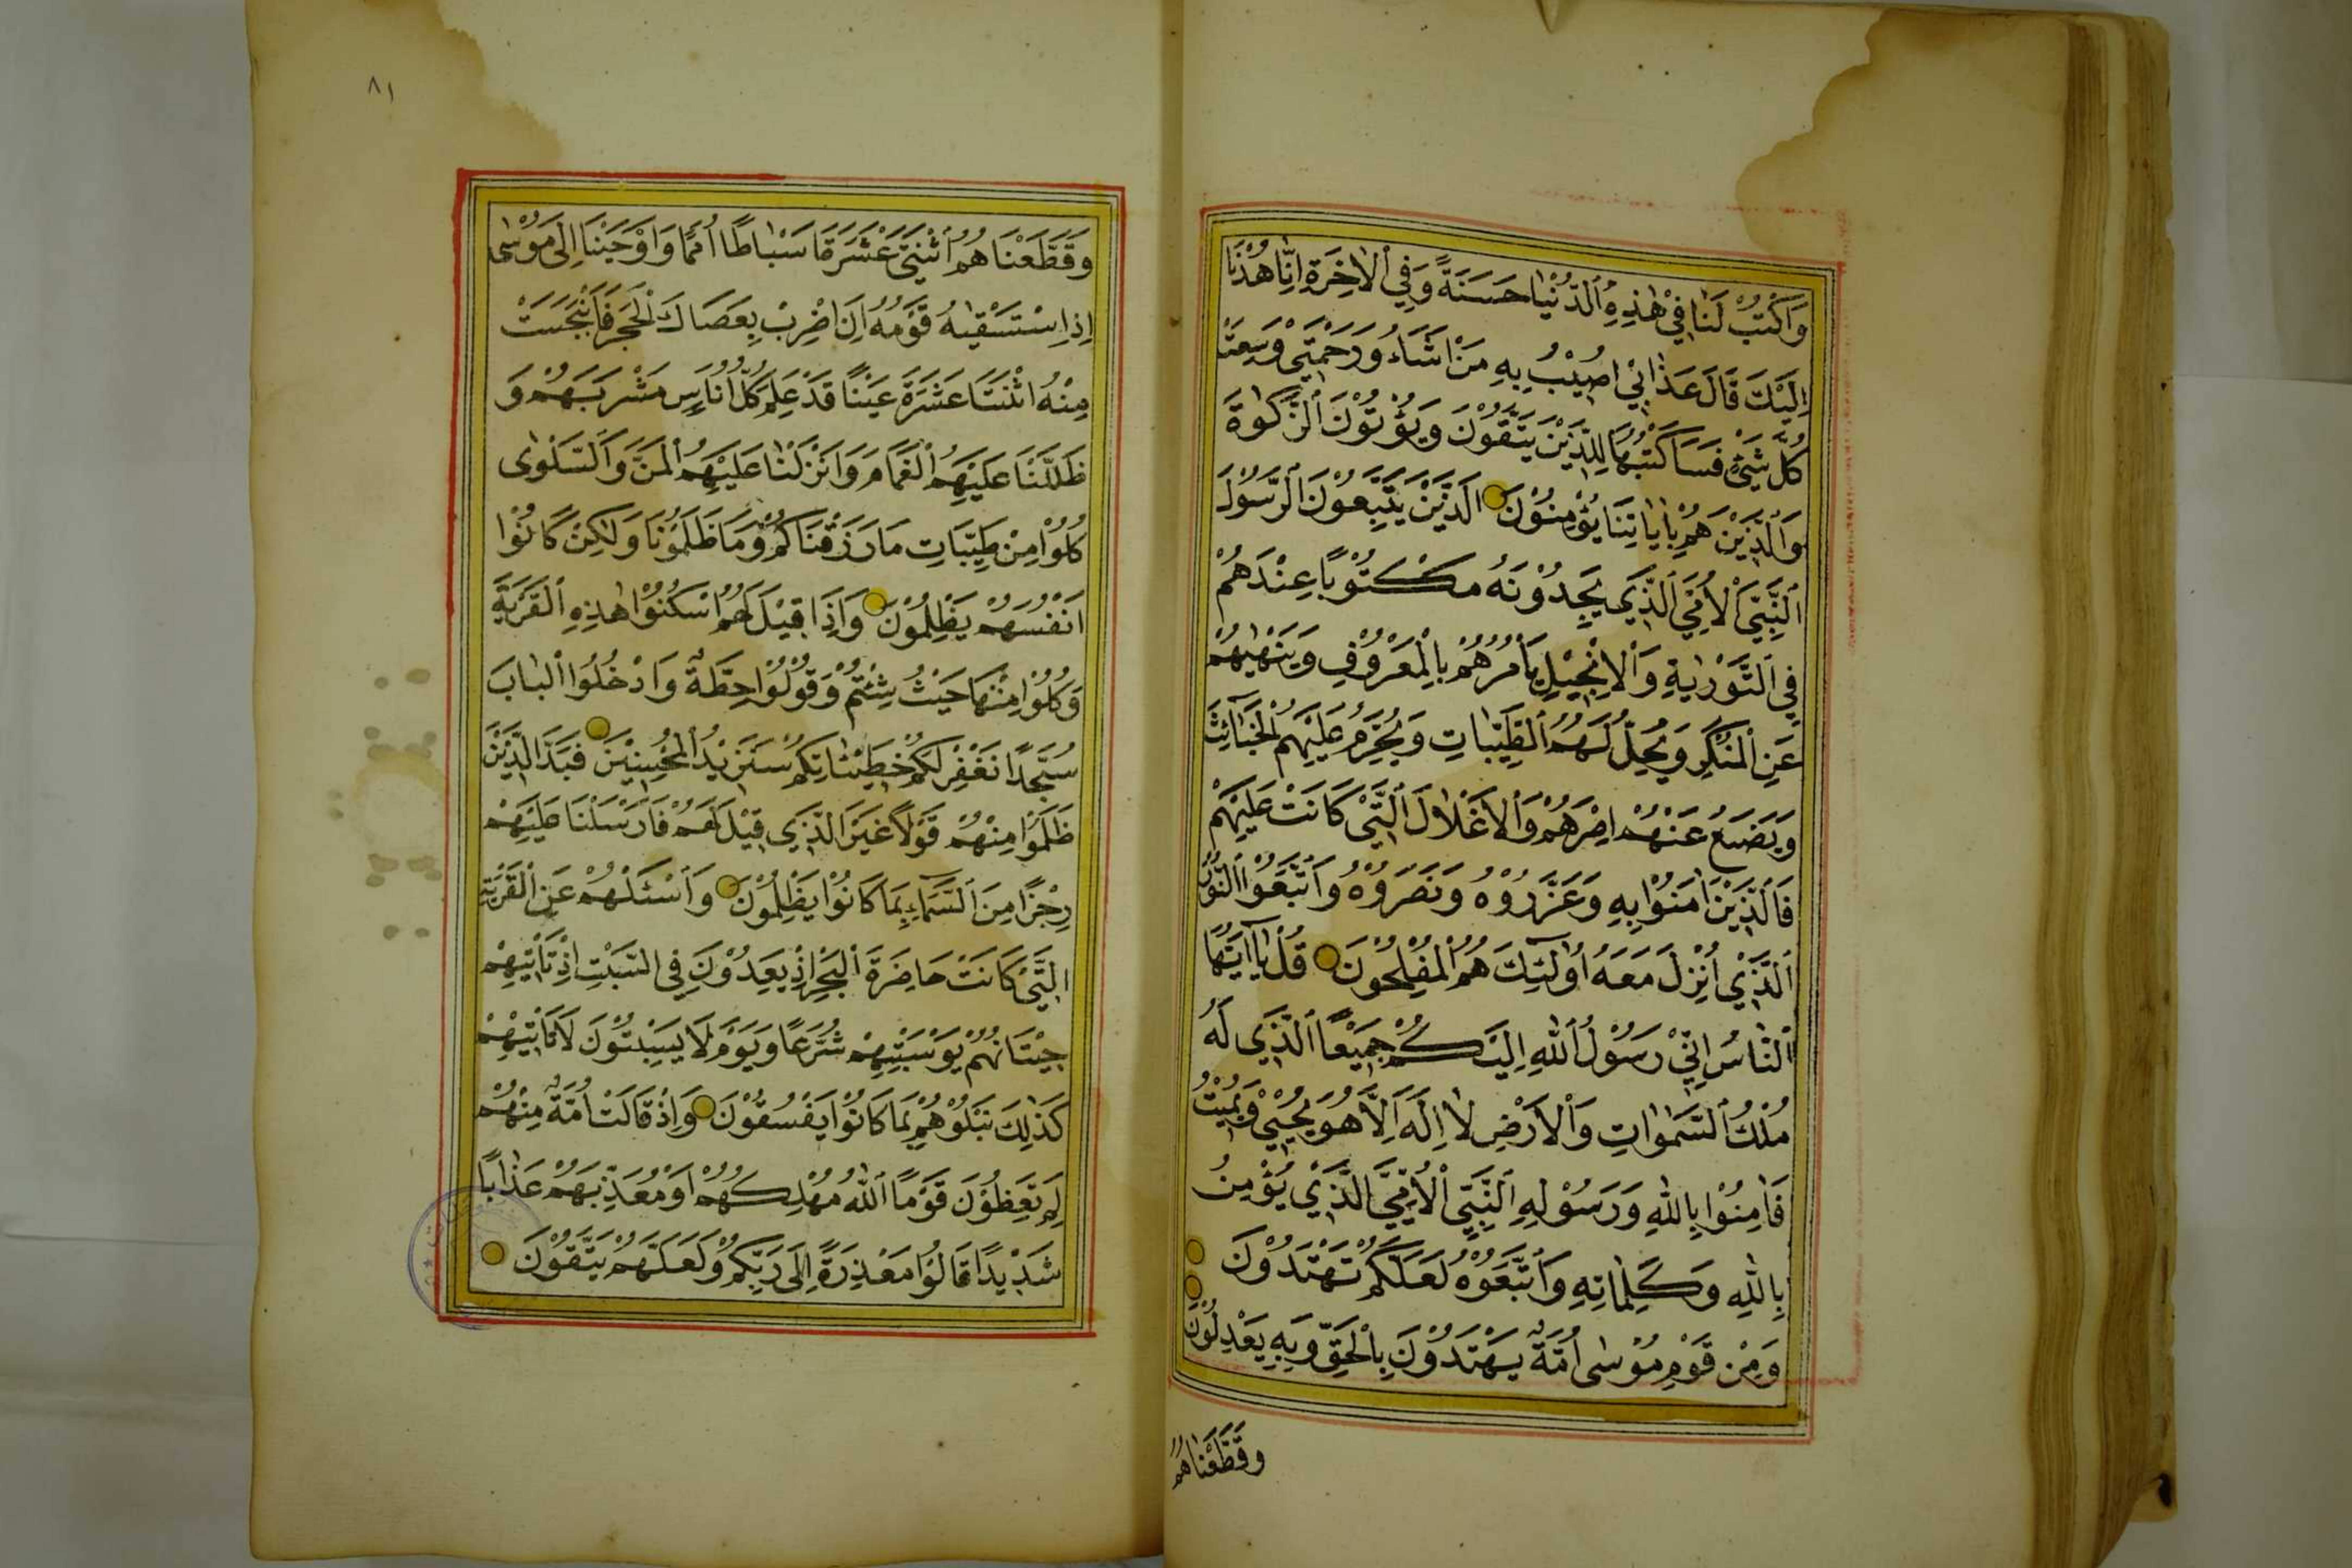 وَاكْتُبْ لَنَا فِي هٰذِهِ الدُّنْيَا حَسَنَةً وَفِي الْاٰخِرَةِ اِنَّا هُدْنَا
اِلَيْكَ قَالَ عَذَابِيْ اُصِيْبُ بِهِ مَنْ اَشَاءُ وَرَحْمَتِيْ وَسِعَتْ
كُلَّ شَيْءٍ فَسَاَكْتُبُهَا لِلَّذِيْنَ يَتَّقُوْنَ وَيُؤْتُوْنَ الزَّكٰوةَ
وَالَّذِيْنَ هُمْ بِاٰيَاتِنَا يُؤْمِنُوْنَ اَلَّذِيْنَ يَتَّبِعُوْنَ الرَّسُوْلَ
النَّبِيَّ الْاُمِّيَّ الَّذِيْ يَجِدُوْنَهُ مَكْتُوْبًا عِنْدَهُمْ
فِي التَّوْرٰيةِ وَالْاِنْجِيْلِ يَاْمُرُهُمْ بِالْمَعْرُوْفِ وَيَنْهٰيهُمْ
عَنِ الْمُنْكَرِ وَيُحِلُّ لَهُمُ الطَّيِّبَاتِ وَيُحَرِّمُ عَلَيْهِمُ الْخَبَائِثَ
وَيَضَعُ عَنْهُمْ اِصْرَهُمْ وَالْاَغْلَالَ الَّتِيْ كَانَتْ عَلَيْهِمْ
فَالَّذِيْنَ اٰمَنُوْا بِهِ وَعَزَّرُوْهُ وَنَصَرُوْهُ وَاتَّبَعُوا النُّوْرَ
الَّذِيْ اُنْزِلَ مَعَهُ اُولٰئِكَ هُمُ الْمُفْلِحُوْنَ قُلْ يَا اَيُّهَا
النَّاسُ اِنِّيْ رَسُوْلُ اللهِ اِلَيْكُمْ جَمِيْعًا الَّذِيْ لَهُ
مُلْكُ السَّمٰوَاتِ وَالْاَرْضِ لَا اِلٰهَ اِلَّا هُوَ يُحْيِيْ وَيُمِيْتُ
فَاٰمِنُوْا بِاللهِ وَرَسُوْلِهِ النَّبِيِّ الْاُمِّيِّ الَّذِيْ يُؤْمِنُ
بِاللهِ وَكَلِمَاتِهِ وَاتَّبِعُوْهُ لَعَلَّكُمْ تَهْتَدُوْنَ
وَمِنْ قَوْمِ مُوْسٰى اُمَّةٌ يَهْتَدُوْنَ بِالْحَقِّ وَبِهِ يَعْدِلُوْنَ
وَقَطَّعْنَاهُمُ
٨١
وَقَطَّعْنَاهُمُ اثْنَتَيْ عَشْرَةَ اَسْبَاطًا اُمَمًا وَاَوْحَيْنَا اِلٰى مُوْسٰى
اِذِ اسْتَسْقٰيهُ قَوْمُهُ اَنِ اضْرِبْ بِعَصَاكَ الْحَجَرَ فَانْبَجَسَتْ
مِنْهُ اثْنَتَا عَشَرَةَ عَيْنًا قَدْ عَلِمَ كُلُّ اُنَاسٍ مَشْرَبَهُمْ وَ
ظَلَّلْنَا عَلَيْهِمُ الْغَمَامَ وَاَنْزَلْنَا عَلَيْهِمُ الْمَنَّ وَالسَّلْوٰى
كُلُوْا مِنْ طَيِّبَاتِ مَا رَزَقْنَاكُمْ وَمَا ظَلَمُوْنَا وَلٰكِنْ كَانُوْا
اَنْفُسَهُمْ يَظْلِمُوْنَ وَاِذَا قِيْلَ لَهُمُ اسْكُنُوْا هٰذِهِ الْقَرْيَةَ
وَكُلُوْا مِنْهَا حَيْثُ شِئْتُمْ وَقُوْلُوْا حِطَّةٌ وَادْخُلُوا الْبَابَ
سُجَّدًا نَغْفِرْ لَكُمْ خَطِيْئَاتِكُمْ سَنَزِيْدُ الْمُحْسِنِيْنَ فَبَدَّلَ الَّذِيْنَ
ظَلَمُوْا مِنْهُمْ قَوْلًا غَيْرَ الَّذِيْ قِيْلَ لَهُمْ فَاَرْسَلْنَا عَلَيْهِمْ
رِجْزًا مِنَ السَّمَاءِ بِمَا كَانُوْا يَظْلِمُوْنَ وَاسْئَلْهُمْ عَنِ الْقَرْيَةِ
الَّتِيْ كَانَتْ حَاضِرَةَ الْبَحْرِ اِذْ يَعْدُوْنَ فِي السَّبْتِ اِذْ تَاْتِيْهِمْ
حِيْتَانُهُمْ يَوْمَ سَبْتِهِمْ شُرَّعًا وَيَوْمَ لَا يَسْبِتُوْنَ لَا تَاْتِيْهِمْ
كَذٰلِكَ نَبْلُوْهُمْ بِمَا كَانُوْا يَفْسُقُوْنَ وَاِذْ قَالَتْ اُمَّةٌ مِنْهُمْ
لِمَ تَعِظُوْنَ قَوْمًا اللهُ مُهْلِكُهُمْ اَوْ مُعَذِّبُهُمْ عَذَابًا
شَدِيْدًا قَالُوْا مَعْذِرَةً اِلٰى رَبِّكُمْ وَلَعَلَّهُمْ يَتَّقُوْنَ